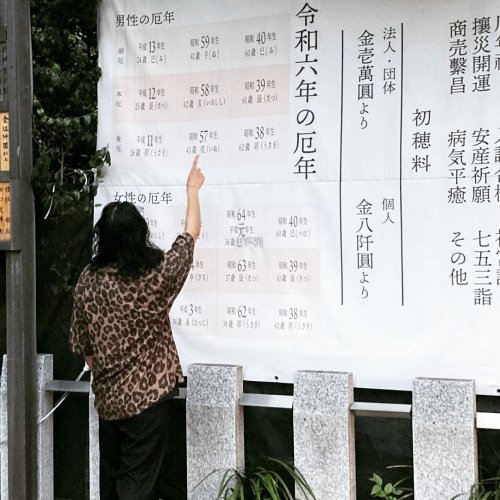 令和六年の厄年
男性の厄年
前厄
平成13年生
24歳 巳(み)
昭和59年生
41歳 子(ね)
昭和40年生
60歳 巳(み)
本厄
平成12年生
25歳 辰(たつ)
昭和58年生
42歳 亥(いのしし)
昭和39年生
61歳 辰(たつ)
後厄
平成11年生
26歳 卯(うさぎ)
昭和57年生
43歳 戌(いぬ)
昭和38年生
62歳 卯(うさぎ)
女性の厄年
昭和64年生
平成元年生
36歳 巳(へび)
昭和40年生
60歳 巳(へび)
昭和63年生
37歳 辰(たつ)
昭和39年生
61歳 辰(たつ)
平成3年生
34歳 未(ひつじ)
昭和62年生
38歳 卯(うさぎ)
昭和38年生
62歳 卯(うさぎ)
攘災開運 安産祈願 七五三詣
商売繫昌 病気平癒 その他
初穂料
法人・団体
金壱萬圓より
個人
金八阡圓より